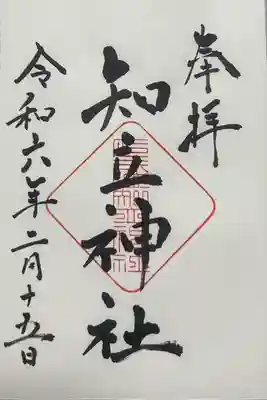 奉拝
知立神社
令和六年二月十五日